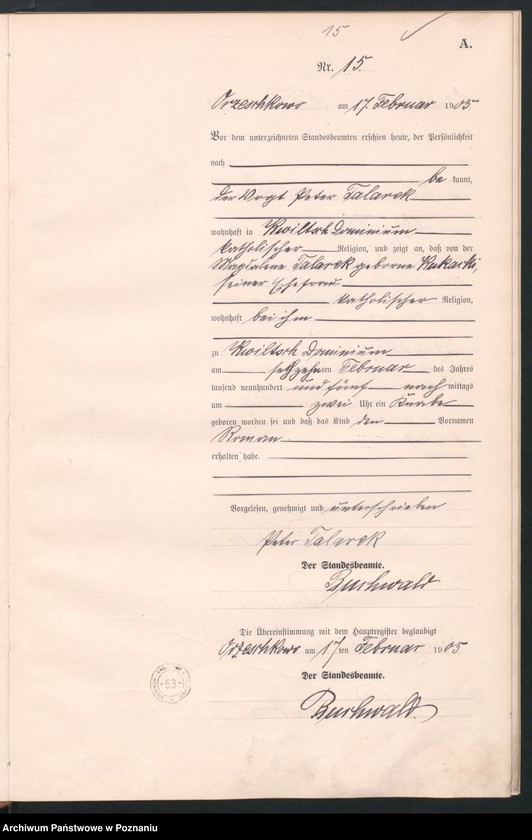 15
A.
Nr. 15.
Orzeschkowo am 17. Februar 1905
Vor dem unterzeichneten Standesbeamten erschien heute, der Persönlichkeit
nach
be kannt,
der Vogt Peter Talarek
wohnhaft in Kwiltsch Dominium
katholischer Religion, und zeigt an, daß von der
Magdalene Talarek geborne Kukarski,
seiner Ehefrau
katholischer Religion,
wohnhaft bei ihm
zu Kwiltsch Dominium
am sechzehnten Februar des Jahres
tausend neunhundert und fünf nach mittags
um zwei Uhr ein Knabe
geboren worden sei und daß das Kind den Vornamen
Roman
erhalten habe.
Vorgelesen, genehmigt und unterschrieben
Peter Talarek
Der Standesbeamte.
Buchwald
Die Übereinstimmung mit dem Hauptregister beglaubigt
Orzeschkowo am 17ten Februar 1905
Der Standesbeamte.
Buchwald.
53
Archiwum Państwowe w Poznaniu